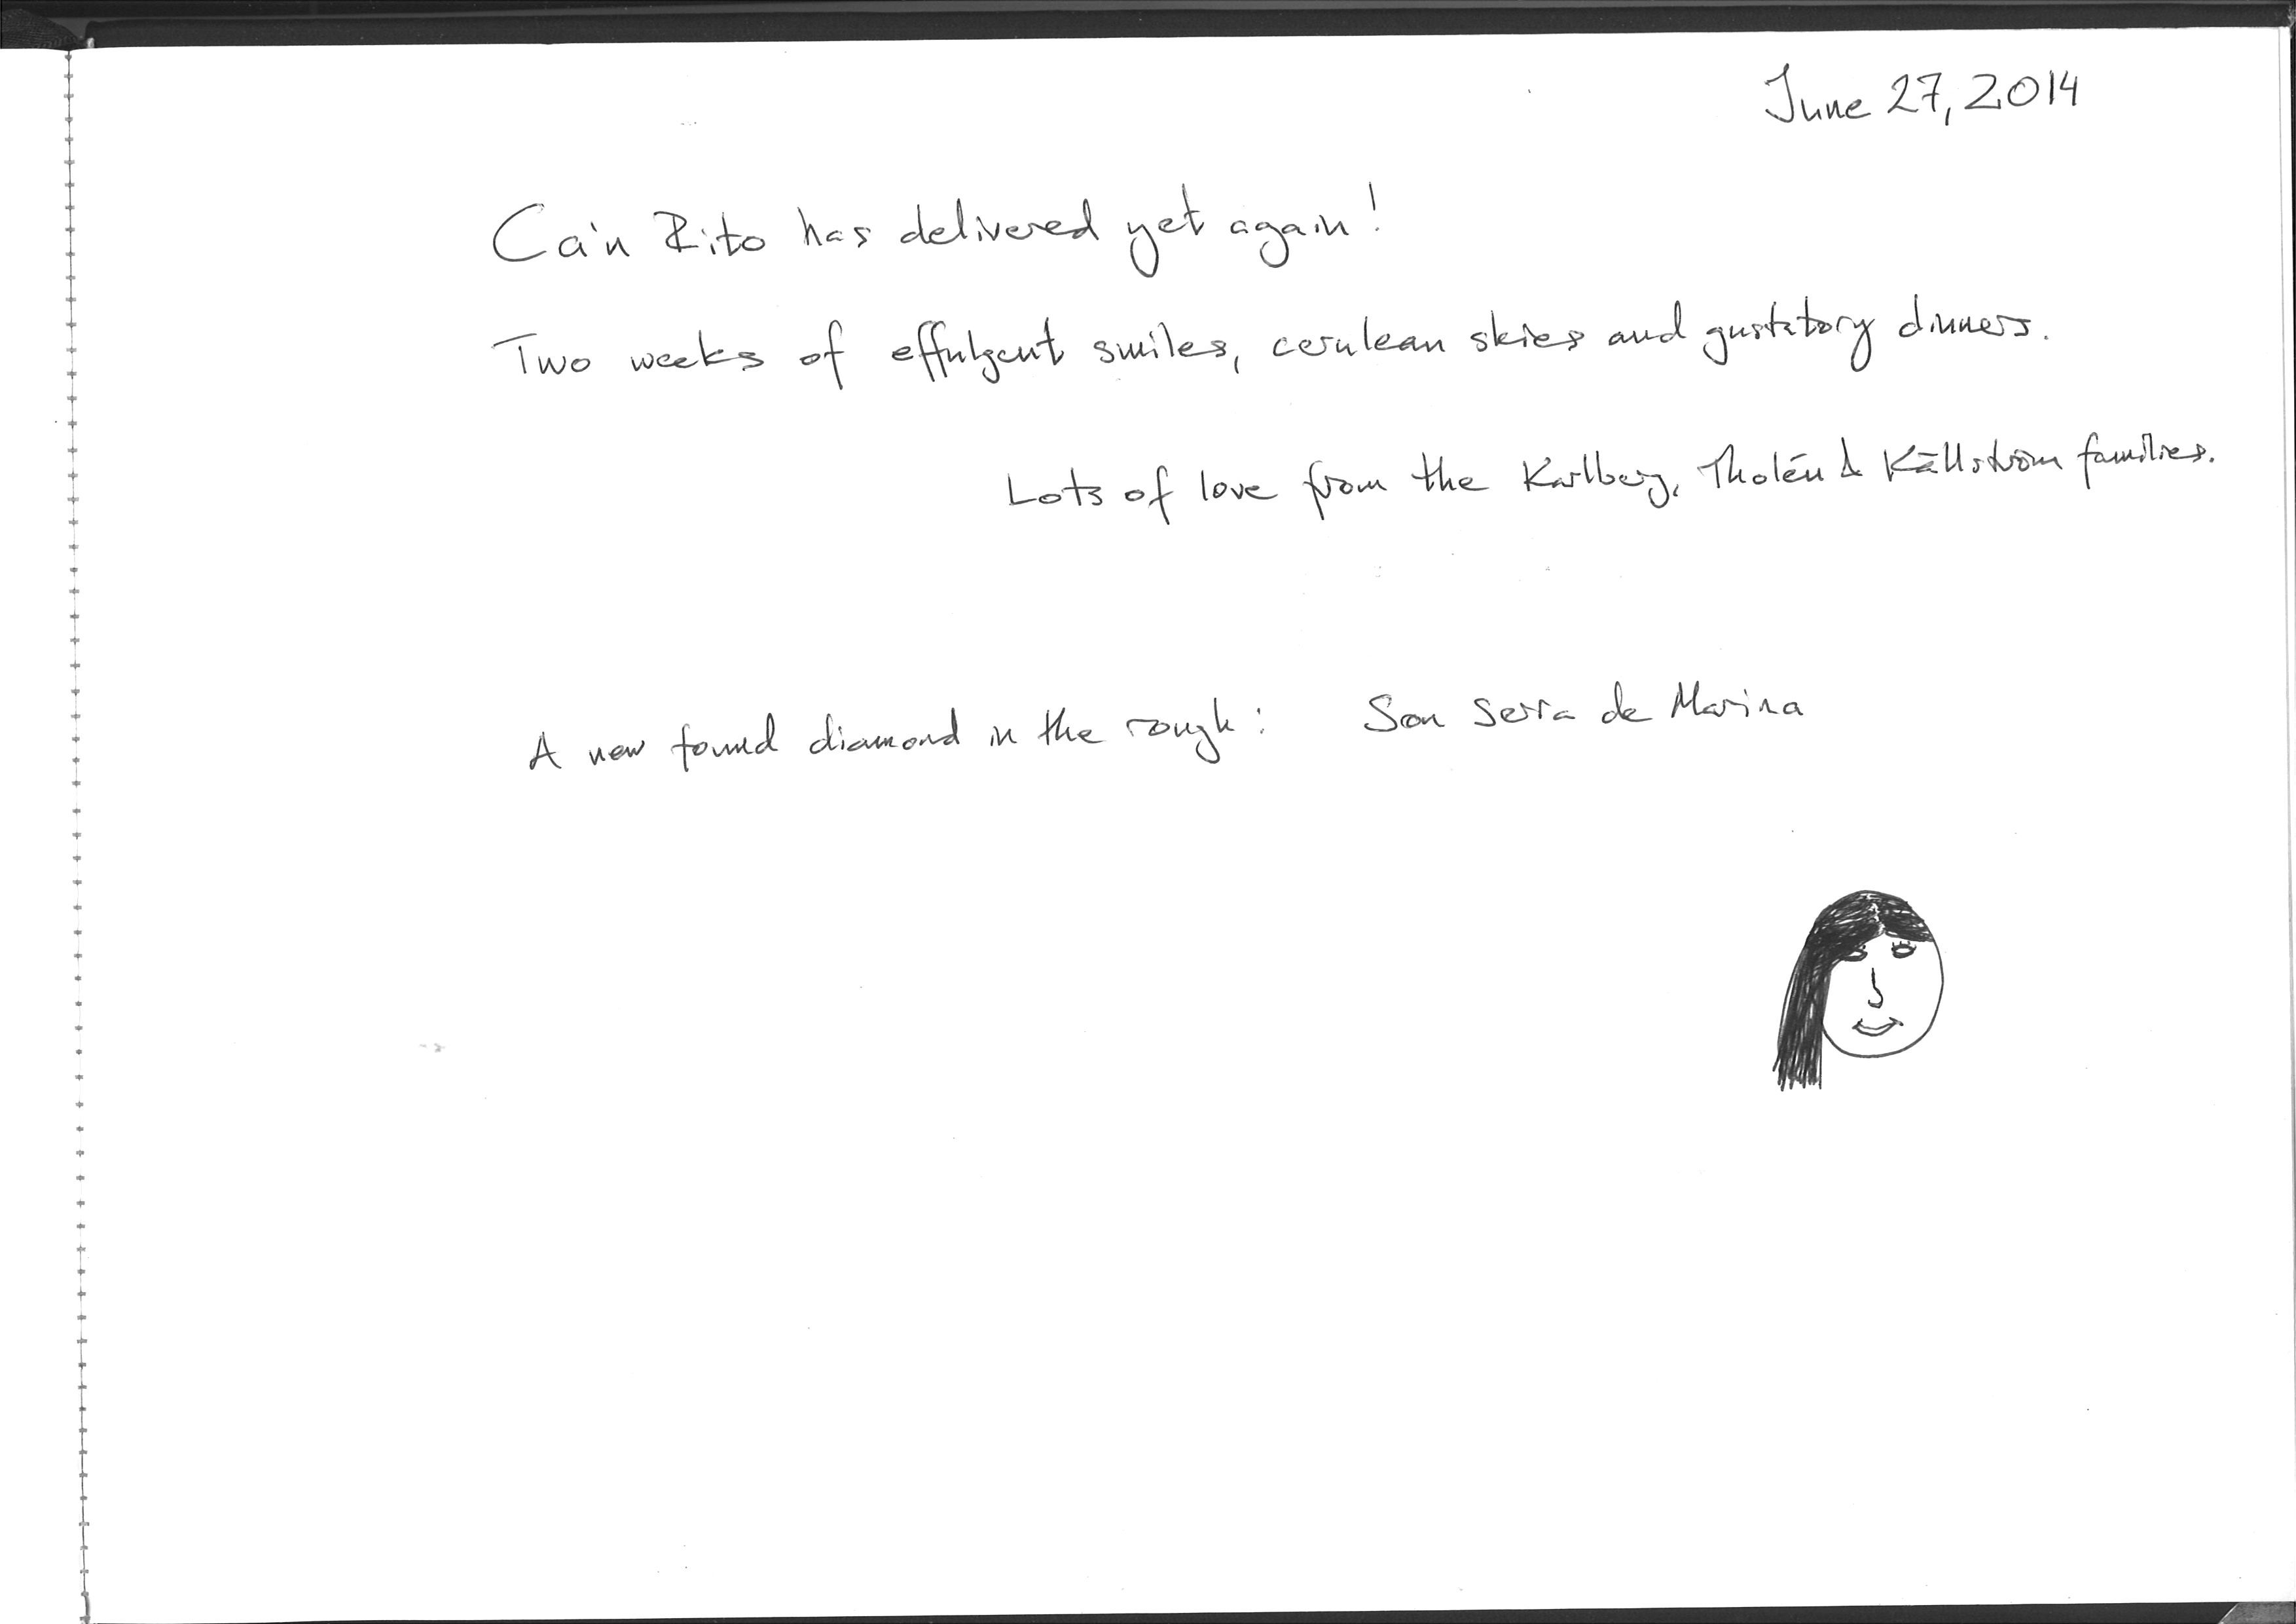 June 27, 2014
Ca'n Rito has delivered yet again!
Two weeks of effulgent smiles, cerulean skies and gustatory dinners.
Lots of love from the Karlberg, Tholén & Källström families.
A new found diamond in the rough: Son Serra de Marina